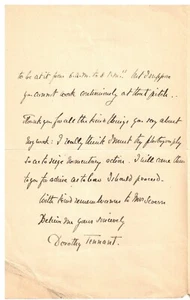 to be at it from
but I suppose
you cannot work continuously at that pitch.
Thank you for all the kind things you say about
my work: I really think I must try photography
so as to seize momentary action. I will come then
to you for advice as to how I should proceed.
With kind remembrance to Mrs Severn
Believe me yours sincerely
Dorothy Tennant.